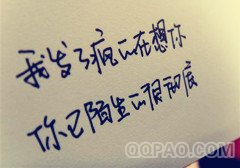 我发了疯的在想你
你已陌生的很彻底
QQPAO.COM